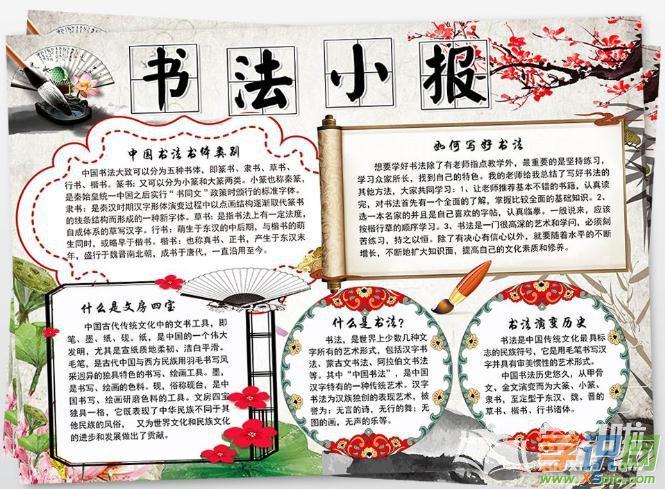 书法小报
中国书法书体类别
中国书法大致可以分为五种书体，即篆书、隶书、草书、
行书、楷书。篆书：又可以分为小篆和大篆两类。小篆也称秦篆，
是秦始皇统一中国之后实行“书同文”政策时颁行的标准字体。
隶书：是秦汉时期汉字形体演变过程中以点画结构逐渐取代篆书
的线条结构而形成的一种新字体。草书：是指书法上有一定法度，
自成体系的草写汉字。行书：萌生于东汉的中后期、与楷书的萌
生同时，或略早于楷书。楷书：也称真书、正书，产生于东汉末
年，盛行于魏晋南北朝，成书于唐代，一直沿用至今。
如何写好书法
想要学好书法除了有老师指点教学外，最重要的是坚持练习，
学习众家所长，找到自己的特色。我的老师给我总结了写好书法的
其他方法，大家共同学习：1、让老师推荐基本不错的书籍，认真读
完，对书法首先有一个全面的了解，掌握比较全面的基础知识。2、
选一本名家的并且是自己喜欢的字帖，认真临摹。一般说来，应该
按楷行草的顺序学习。3、书法是一门很高深的艺术和学问，必须刻
苦练习，持之以恒。除了有决心有信心以外，就要随着水平的不断
增长，不断地扩大知识面，提高自己的文化素质和修养。
什么是文房四宝
中国古代传统文化中的文书工具，即
笔、墨、纸、砚。纸，是中国的一个伟大
发明，尤其是宣纸质地柔韧、洁白平滑。
毛笔，是古代中国与西方民族用羽毛书写风
采迥异的独具特色的书写、绘画工具。墨，
是书写、绘画的色料。砚，俗称砚台，是中
国书写、绘画研磨色料的工具。文房四宝
独具一格，它既表现了中华民族不同于其
他民族的风俗， 又为世界文化和民族文化
的进步和发展做出了贡献。
什么是书法?
书法，是世界上少数几种文
字所有的艺术形式，包括汉字书
法、蒙古文书法、阿拉伯文书法
等。其中“中国书法”，是中国
汉字特有的一种传统艺术。汉字
书法为汉族独创的表现艺术，被
誉为：无言的诗，无行的舞；无
图的画，无声的乐等。
书法演变历史
书法是中国传统文化最具标
志的民族符号，它是用毛笔书写汉
字并具有审美惯性的艺术形式。
中国书法历史悠久，从甲骨
文、金文演变而为大篆、小篆、
隶书，至定型于东汉、魏、晋的
草书、楷书、行书诸体。
学识网
www.XS5pic.com